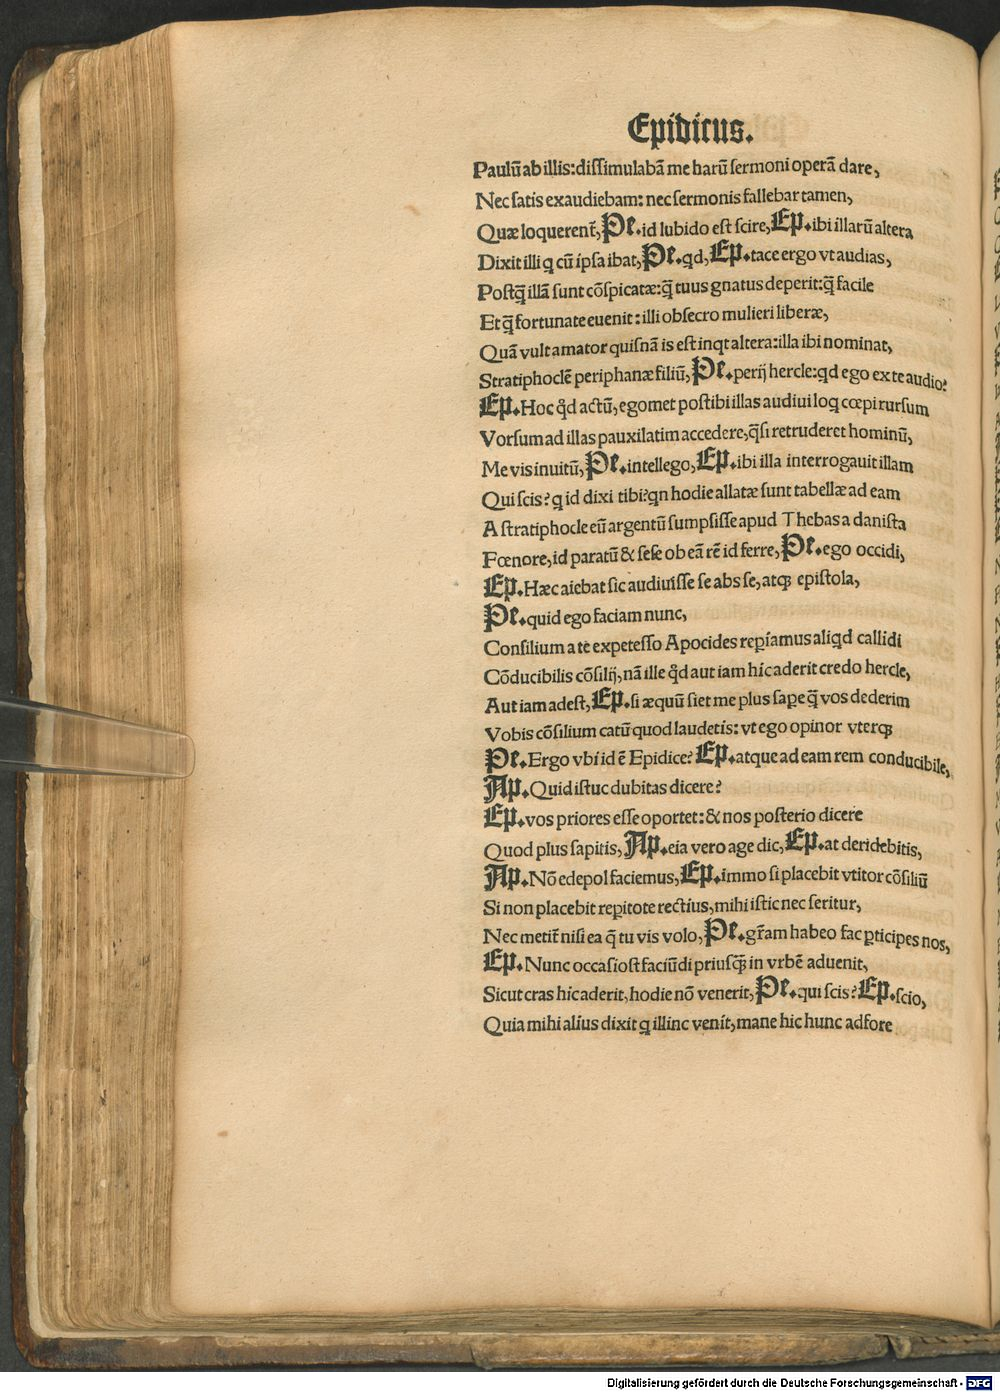 Epidicus.
Paulū ab illis: dissimulabā me harū sermoni operā dare,
Nec satis exaudiebam: nec sermonis fallebar tamen,
Quæ loquerent̄, Pe. id lubido est scire, Ep. ibi illarū altera
Dixit illi q cū ipsa ibat, Pe. qd, Ep. tace ergo vt audias,
Postq̄ illā sunt cōspicatæ: q̄ tuus gnatus deperit: q̄ facile
Et q̄ fortunate euenit: illi obsecro mulieri liberæ,
Quā vult amator quisnā is est inqt altera: illa ibi nominat,
Stratiphoclē periphanæ filiū, Pe. perij hercle: qd ego ex te audio?
Ep. Hoc qd̄ actū, egomet postibi illas audiui loq cœpi rursum
Vorsum ad illas pauxilatim accedere, q̄si retruderet hominū,
Me vis inuitū, Pe. intellego, Ep. ibi illa interrogauit illam
Qui scis? q id dixi tibi? qn hodie allatæ sunt tabellæ ad eam
A stratiphocle eū argentū sumpsisse apud Thebas a danista
Fœnore, id paratū & sese ob eā rē id ferre, Pe. ego occidi,
Ep. Hæc aiebat sic audiuisse se abs se, atqȝ epistola,
Pe. quid ego faciam nunc,
Consilium a te expetesso Apocides rep̲iamus aliqd callidi
Cōducibilis cōsilij, nā ille qd̄ aut iam hic aderit credo hercle,
Aut iam adest, Ep. si æquū siet me plus sap̲e q̄ vos dederim
Vobis cōsilium catū quod laudetis: vt ego opinor vterqȝ
Pe. Ergo vbi id ē Epidice? Ep. atque ad eam rem conducibile,
Ap. Quid istuc dubitas dicere?
Ep. vos priores esse oportet: & nos posterio dicere
Quod plus sapitis, Ap. eia vero age dic, Ep. at deridebitis,
Ap. Nō edepol faciemus, Ep. immo si placebit vtitor cōsiliū
Si non placebit rep̲itote rectius, mihi istic nec seritur,
Nec metit̄ nisi ea q̄ tu vis volo, Pe. gr̄am habeo fac p̲ticipes nos,
Ep. Nunc occasiost faciūdi priusq̄ȝ in vrbē aduenit,
Sicut cras hic aderit, hodie nō venerit, Pe. qui scis? Ep. scio,
Quia mihi alius dixit q illinc venit, mane hic hunc adfore
Digitalisierung gefördert durch die Deutsche Forschungsgemeinschaft - DFG